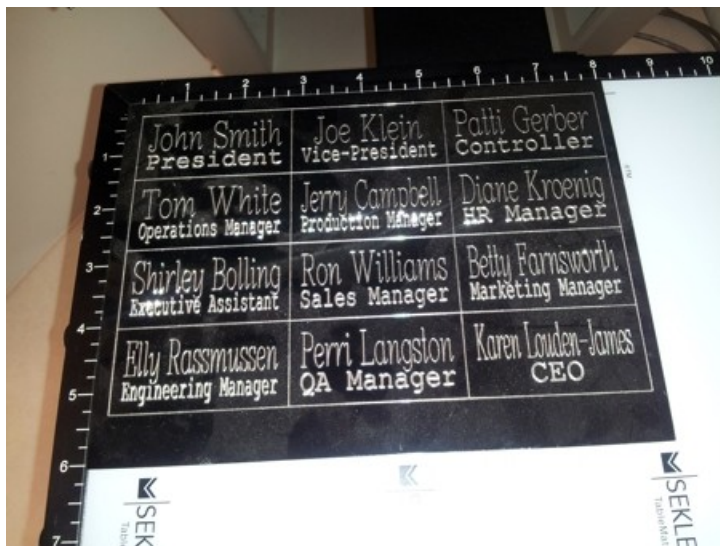 1 2 3 4 5 6 7 8 9 10
1
2
3
4
5
6
7
John Smith
President
Joe Klein
Vice-President
Patti Gerber
Controller
Tom White
Operations Manager
Jerry Campbell
Production Manager
Diane Kroenig
HR Manager
Shirley Bolling
Executive Assistant
Ron Williams
Sales Manager
Betty Farnsworth
Marketing Manager
Elly Rassmussen
Engineering Manager
Perri Langston
QA Manager
Karen Louden-James
CEO
SEK
SEKLE
TableMat